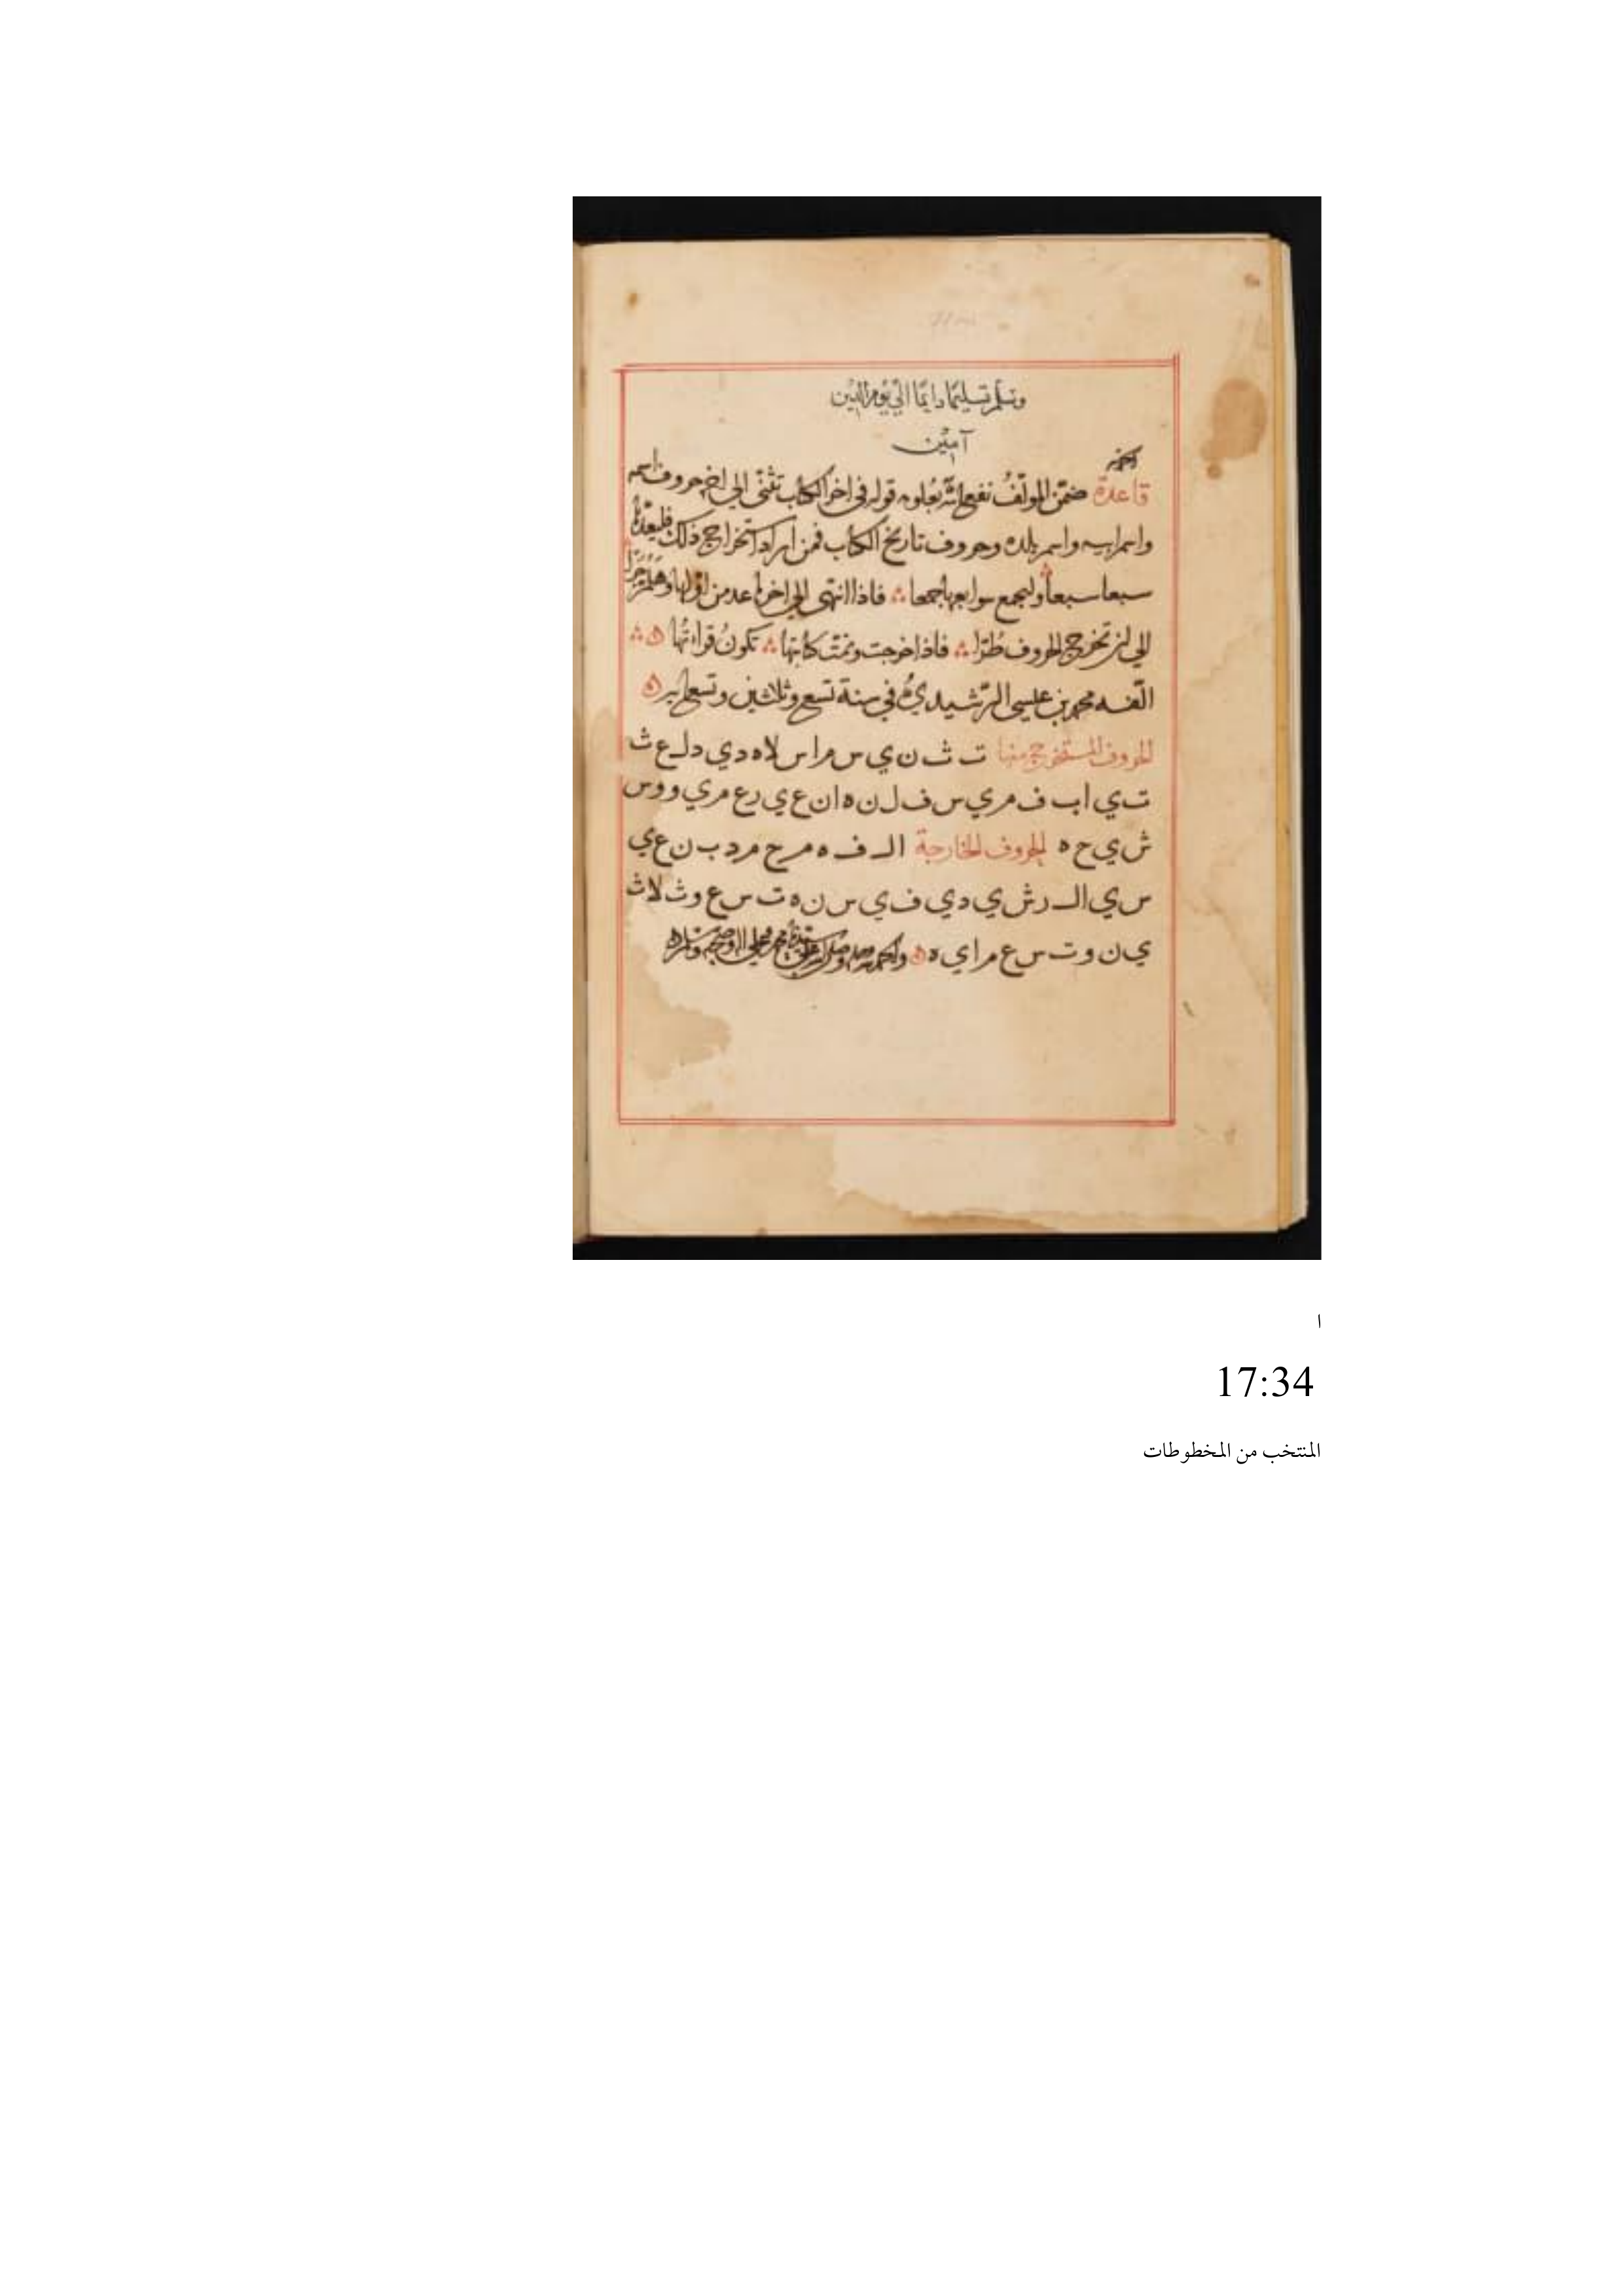 وسلم تسليمًا دايمًا الي يوم الدين
آمين
قاعدة ضمّن المولّفُ نفع الله بعُلومه قوله في اخر الكتاب تثنّى الي اخره حروف اسمه
واسم ابيه واسم بلده وحروف تاريخ الكتاب فمن اراد استخراج ذلك فليعدّها
سبعا سبعاً وليجمع سوابعها جمعا فاذا انتهى الي اخرها عد من اولها وهلم جرا
الي ان تخرج الحروف طُرّا فاذا خرجت وتمت كتابتها تكونُ قراءتُها
الّفه محمد بن عيسى الرّشيديُّ في سنة تسع وثلاثين وتسعمايه
الحروف المستخرج منها ت ث ن ي س م ا س لا ه د ي د ل ع ث
ت ي ا ب ف م ر ي س ف ل ن ه ا ن ع ي ر ع م ر ي و و س
ش ي ح ه الحروف الخارجة ا ل ف ه م ح م د ب ن ع ي
س ي ا ل ر ش ي د ي ف ي س ن ه ت س ع و ث لا ث
ي ن و ت س ع م ا ي ه والحمد لله وصلى الله على سيدنا محمد وعلى اله وصحبه وسلم
ا
17:34
المنتخب من المخطوطات